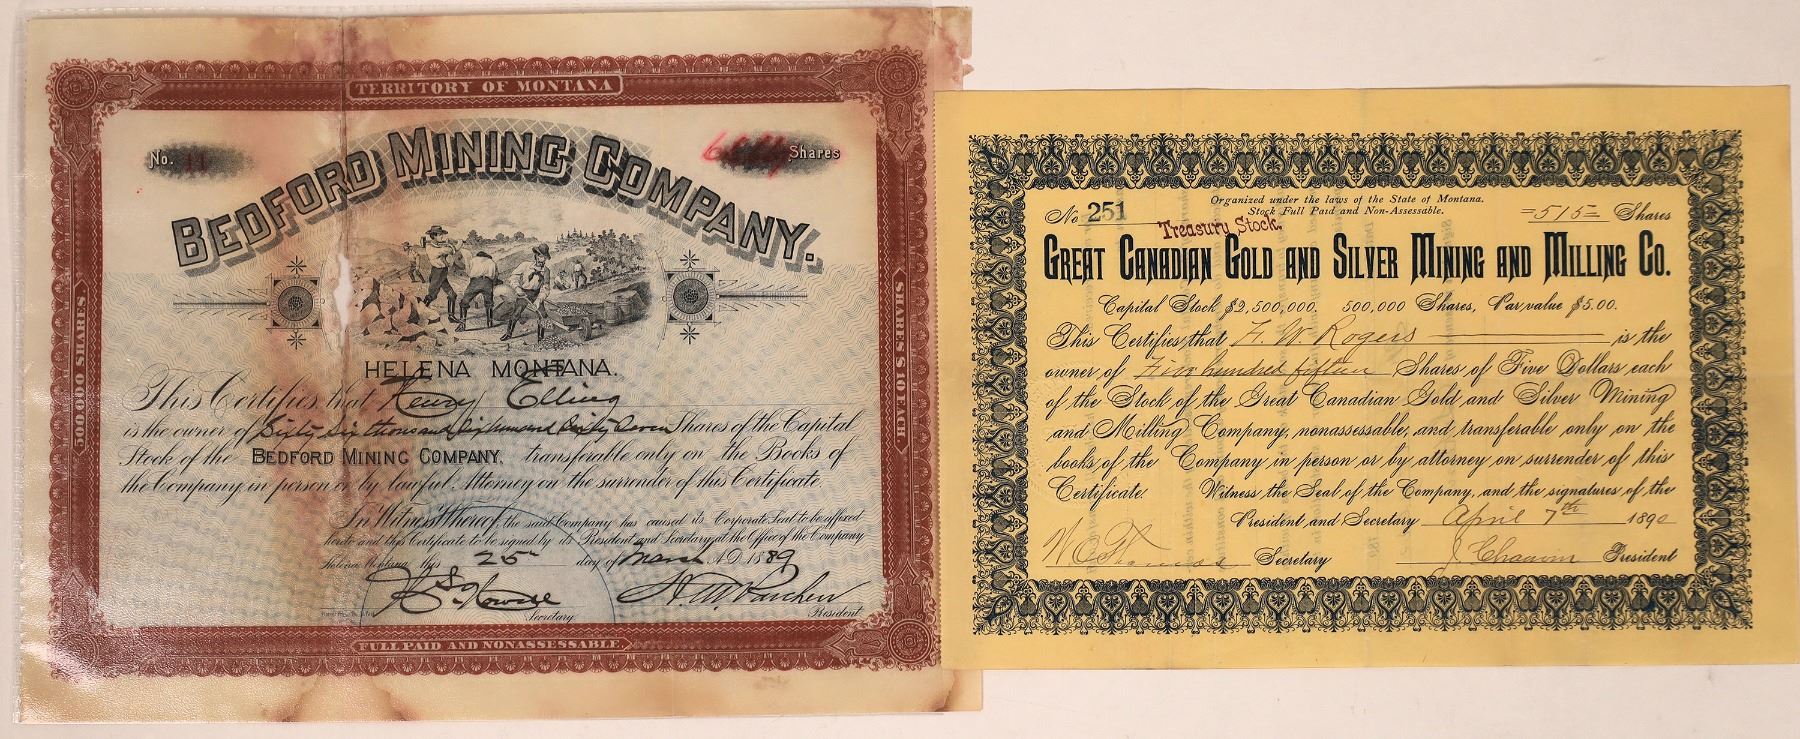 TERRITORY OF MONTANA
No. 11
Shares
BEDFORD MINING COMPANY.
500,000 SHARES
SHARES $10 EACH
HELENA MONTANA.
This Certifies that Henry Elling
is the owner of Sixty Six thousand Six hundred Sixty Seven Shares of the Capital
Stock of the BEDFORD MINING COMPANY, transferable only on the Books of
the Company, in person or by lawful Attorney on the surrender of this Certificate.
In Witness Whereof, the said Company has caused its Corporate Seal to be affixed
hereto and this Certificate to be signed by its President and Secretary at the Office of the Company
Helena Montana this 25 day of March A.D. 1889
Secretary. President
FULL PAID AND NONASSESSABLE
Organized under the laws of the State of Montana.
Stock Full Paid and Non-Assessable.
No 251
=515= Shares
Treasury Stock.
GREAT CANADIAN GOLD AND SILVER MINING AND MILLING CO.
Capital Stock $2,500,000, 500,000 Shares, Par value $5.00.
This Certifies that F. W. Rogers is the
owner of Five hundred fifteen Shares of Five Dollars each
of the Stock of the Great Canadian Gold and Silver Mining
and Milling Company, nonassessable, and transferable only on the
books of the Company in person or by attorney on surrender of this
Certificate. Witness the Seal of the Company, and the signatures of the
President and Secretary April 7th 1890
Secretary J. Chauvin President